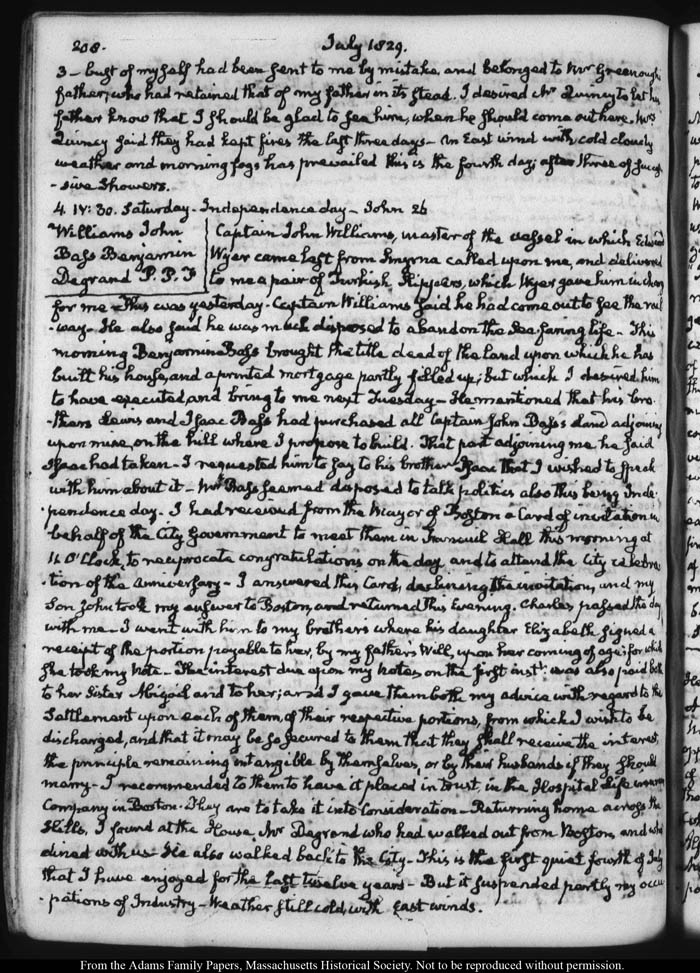 208.
July 1829.
3 — bust of myself had been sent to me by mistake, and belonged to Mr Greenough's
father, who had retained that of my father in its stead. I desired Mr Quincy to let his
father know that I should be glad to see him, when he should come out here. Mrs
Quincy said they had kept fires the last three days — An East wind with cold cloudy
weather and morning fogs has prevailed this is the fourth day; after three of succes
-sive Showers.
4. IV: 30. Saturday. Independence day — John 26
Williams John
Bass Benjamin
Degrand P. P. F
Captain John Williams, master of the vessel in which Edward
Wyer came last from Smyrna called upon me, and delivered
to me a pair of Turkish Slippers, which Wyer gave him in charge
for me — This was yesterday. Captain Williams said he had come out to see the rail
-way — He also said he was much disposed to abandon the Sea-faring life — This
morning Benjamin Bass brought the title deed of the land upon which he has
built his house, and a printed mortgage partly filled up; but which I desired him
to have executed, and bring to me next Tuesday — He mentioned that his bro-
-thers Lewis and Isaac Bass had purchased all Captain John Bass's land adjoining
upon mine, on the hill where I propose to build. That part adjoining me he said
Isaac had taken — I requested him to say to his brother Isaac that I wished to speak
with him about it — Mr Bass seemed disposed to talk politics also this being Inde-
-pendence day. I had received from the Mayor of Boston a Card of invitation in
behalf of the City Government to meet them in Faneuil Hall this morning at
11. O'Clock, to reciprocate congratulations on the day, and to attend the City celebra-
-tion of the anniversary — I answered this Card, declining the invitation, and my
Son John took my answer to Boston, and returned this Evening. Charles passed the day
with me — I went with him to my brother's where his daughter Elizabeth signed a
receipt of the portion payable to her, by my father's Will, upon her coming of age; for which
she took my Note — The interest due upon my Notes on the first instt. was also paid both
to her Sister Abigail and to her; and I gave them both my advice with regard to the
Settlement upon each of them of their respective portions, from which I wish to be
discharged, and that it may be so secured to them that they shall receive the interest,
the principle remaining intangible by themselves, or by their husbands if they should
marry — I recommended to them to have it placed in trust, in the Hospital Life
Company in Boston. They are to take it into Consideration — Returning home across the
Hills, I found at the House, Mr Degrand who had walked out from Boston, and who
dined with us — He also walked back to the City — This is the first quiet fourth of July
that I have enjoyed for the last twelve years — But it suspended partly my occu
-pations of Industry — Weather still cold, with East winds.
From the Adams Family Papers, Massachusetts Historical Society. Not to be reproduced without permission.